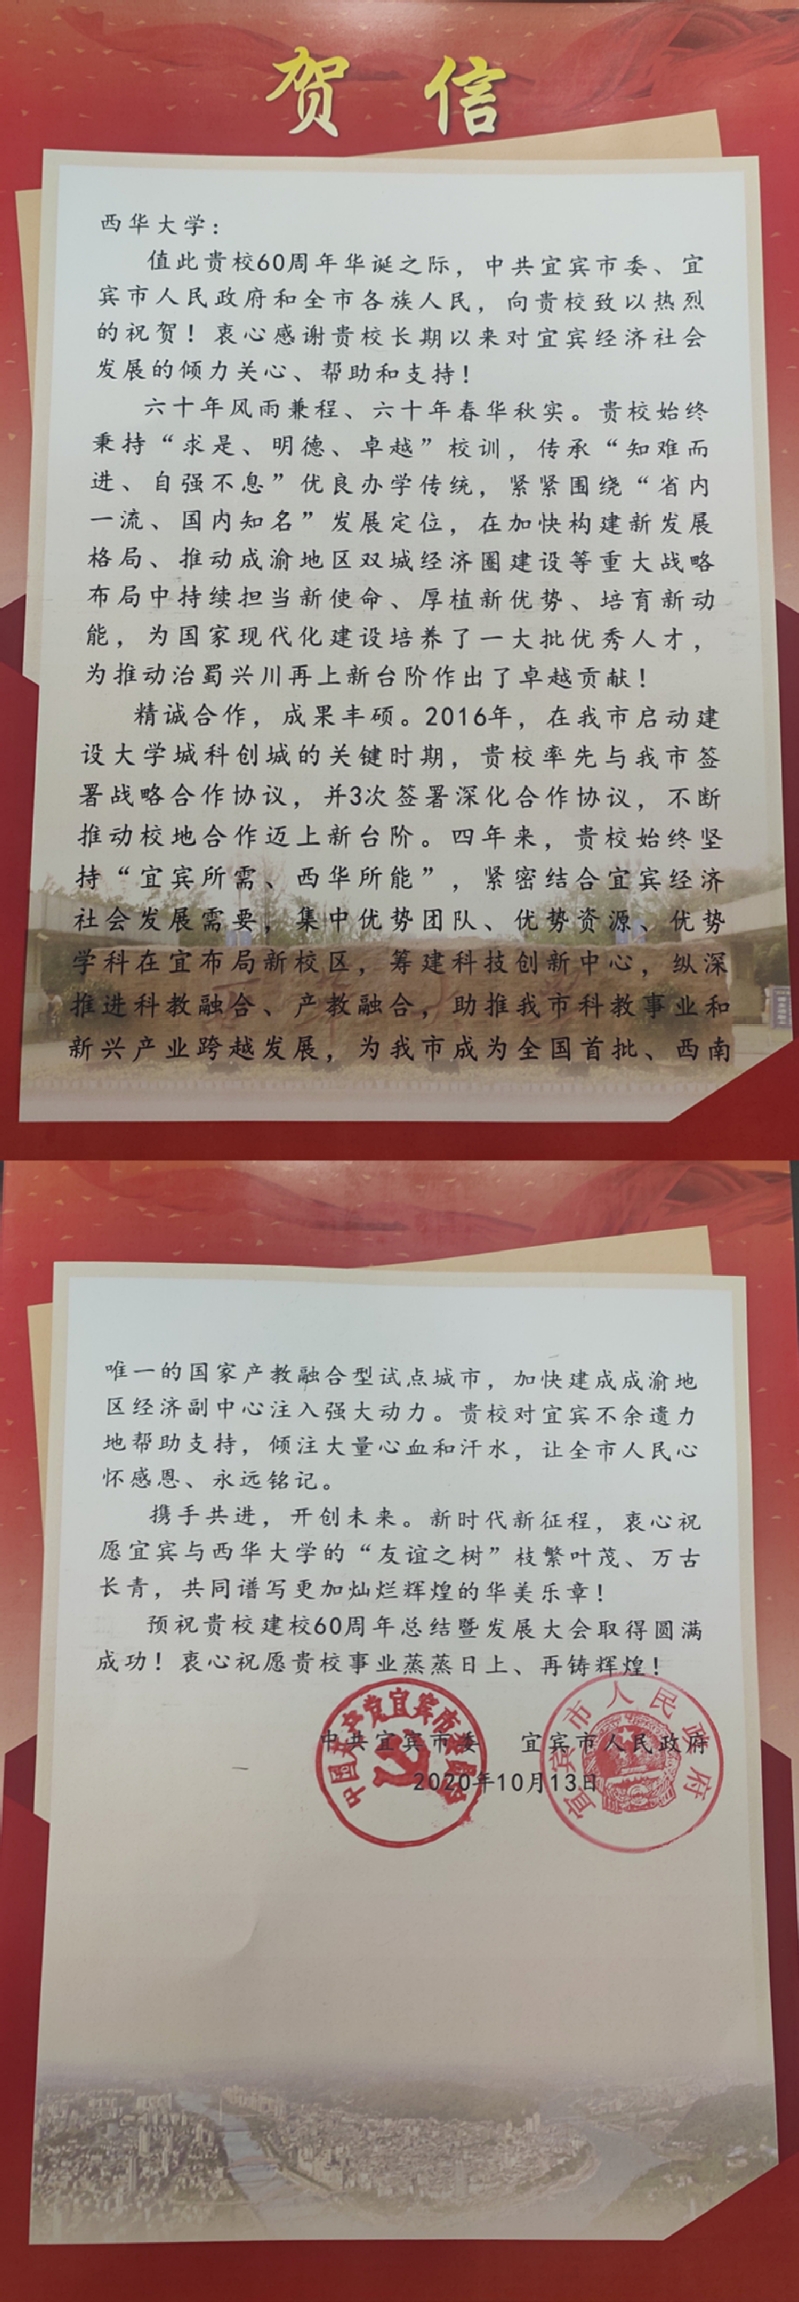 贺信
西华大学：
值此贵校60周年华诞之际，中共宜宾市委、宜
宾市人民政府和全市各族人民，向贵校致以热烈
的祝贺！衷心感谢贵校长期以来对宜宾经济社会
发展的倾力关心、帮助和支持！
六十年风雨兼程、六十年春华秋实。贵校始终
秉持“求是、明德、卓越”校训，传承“知难而
进、自强不息”优良办学传统，紧紧围绕“省内
一流、国内知名”发展定位，在加快构建新发展
格局、推动成渝地区双城经济圈建设等重大战略
布局中持续担当新使命、厚植新优势、培育新动
能，为国家现代化建设培养了一大批优秀人才，
为推动治蜀兴川再上新台阶作出了卓越贡献！
精诚合作，成果丰硕。2016年，在我市启动建
设大学城科创城的关键时期，贵校率先与我市签
署战略合作协议，并3次签署深化合作协议，不断
推动校地合作迈上新台阶。四年来，贵校始终坚
持“宜宾所需、西华所能”，紧密结合宜宾经济
社会发展需要，集中优势团队、优势资源、优势
学科在宜布局新校区，筹建科技创新中心，纵深
推进科教融合、产教融合，助推我市科教事业和
新兴产业跨越发展，为我市成为全国首批、西南
唯一的国家产教融合型试点城市，加快建成成渝地
区经济副中心注入强大动力。贵校对宜宾不余遗力
地帮助支持，倾注大量心血和汗水，让全市人民心
怀感恩、永远铭记。
携手共进，开创未来。新时代新征程，衷心祝
愿宜宾与西华大学的“友谊之树”枝繁叶茂、万古
长青，共同谱写更加灿烂辉煌的华美乐章！
预祝贵校建校60周年总结暨发展大会取得圆满
成功！衷心祝愿贵校事业蒸蒸日上、再铸辉煌！
中共宜宾市委 宜宾市人民政府
2020年10月13日
中国共产党宜宾市委员会
宜宾市人民政府